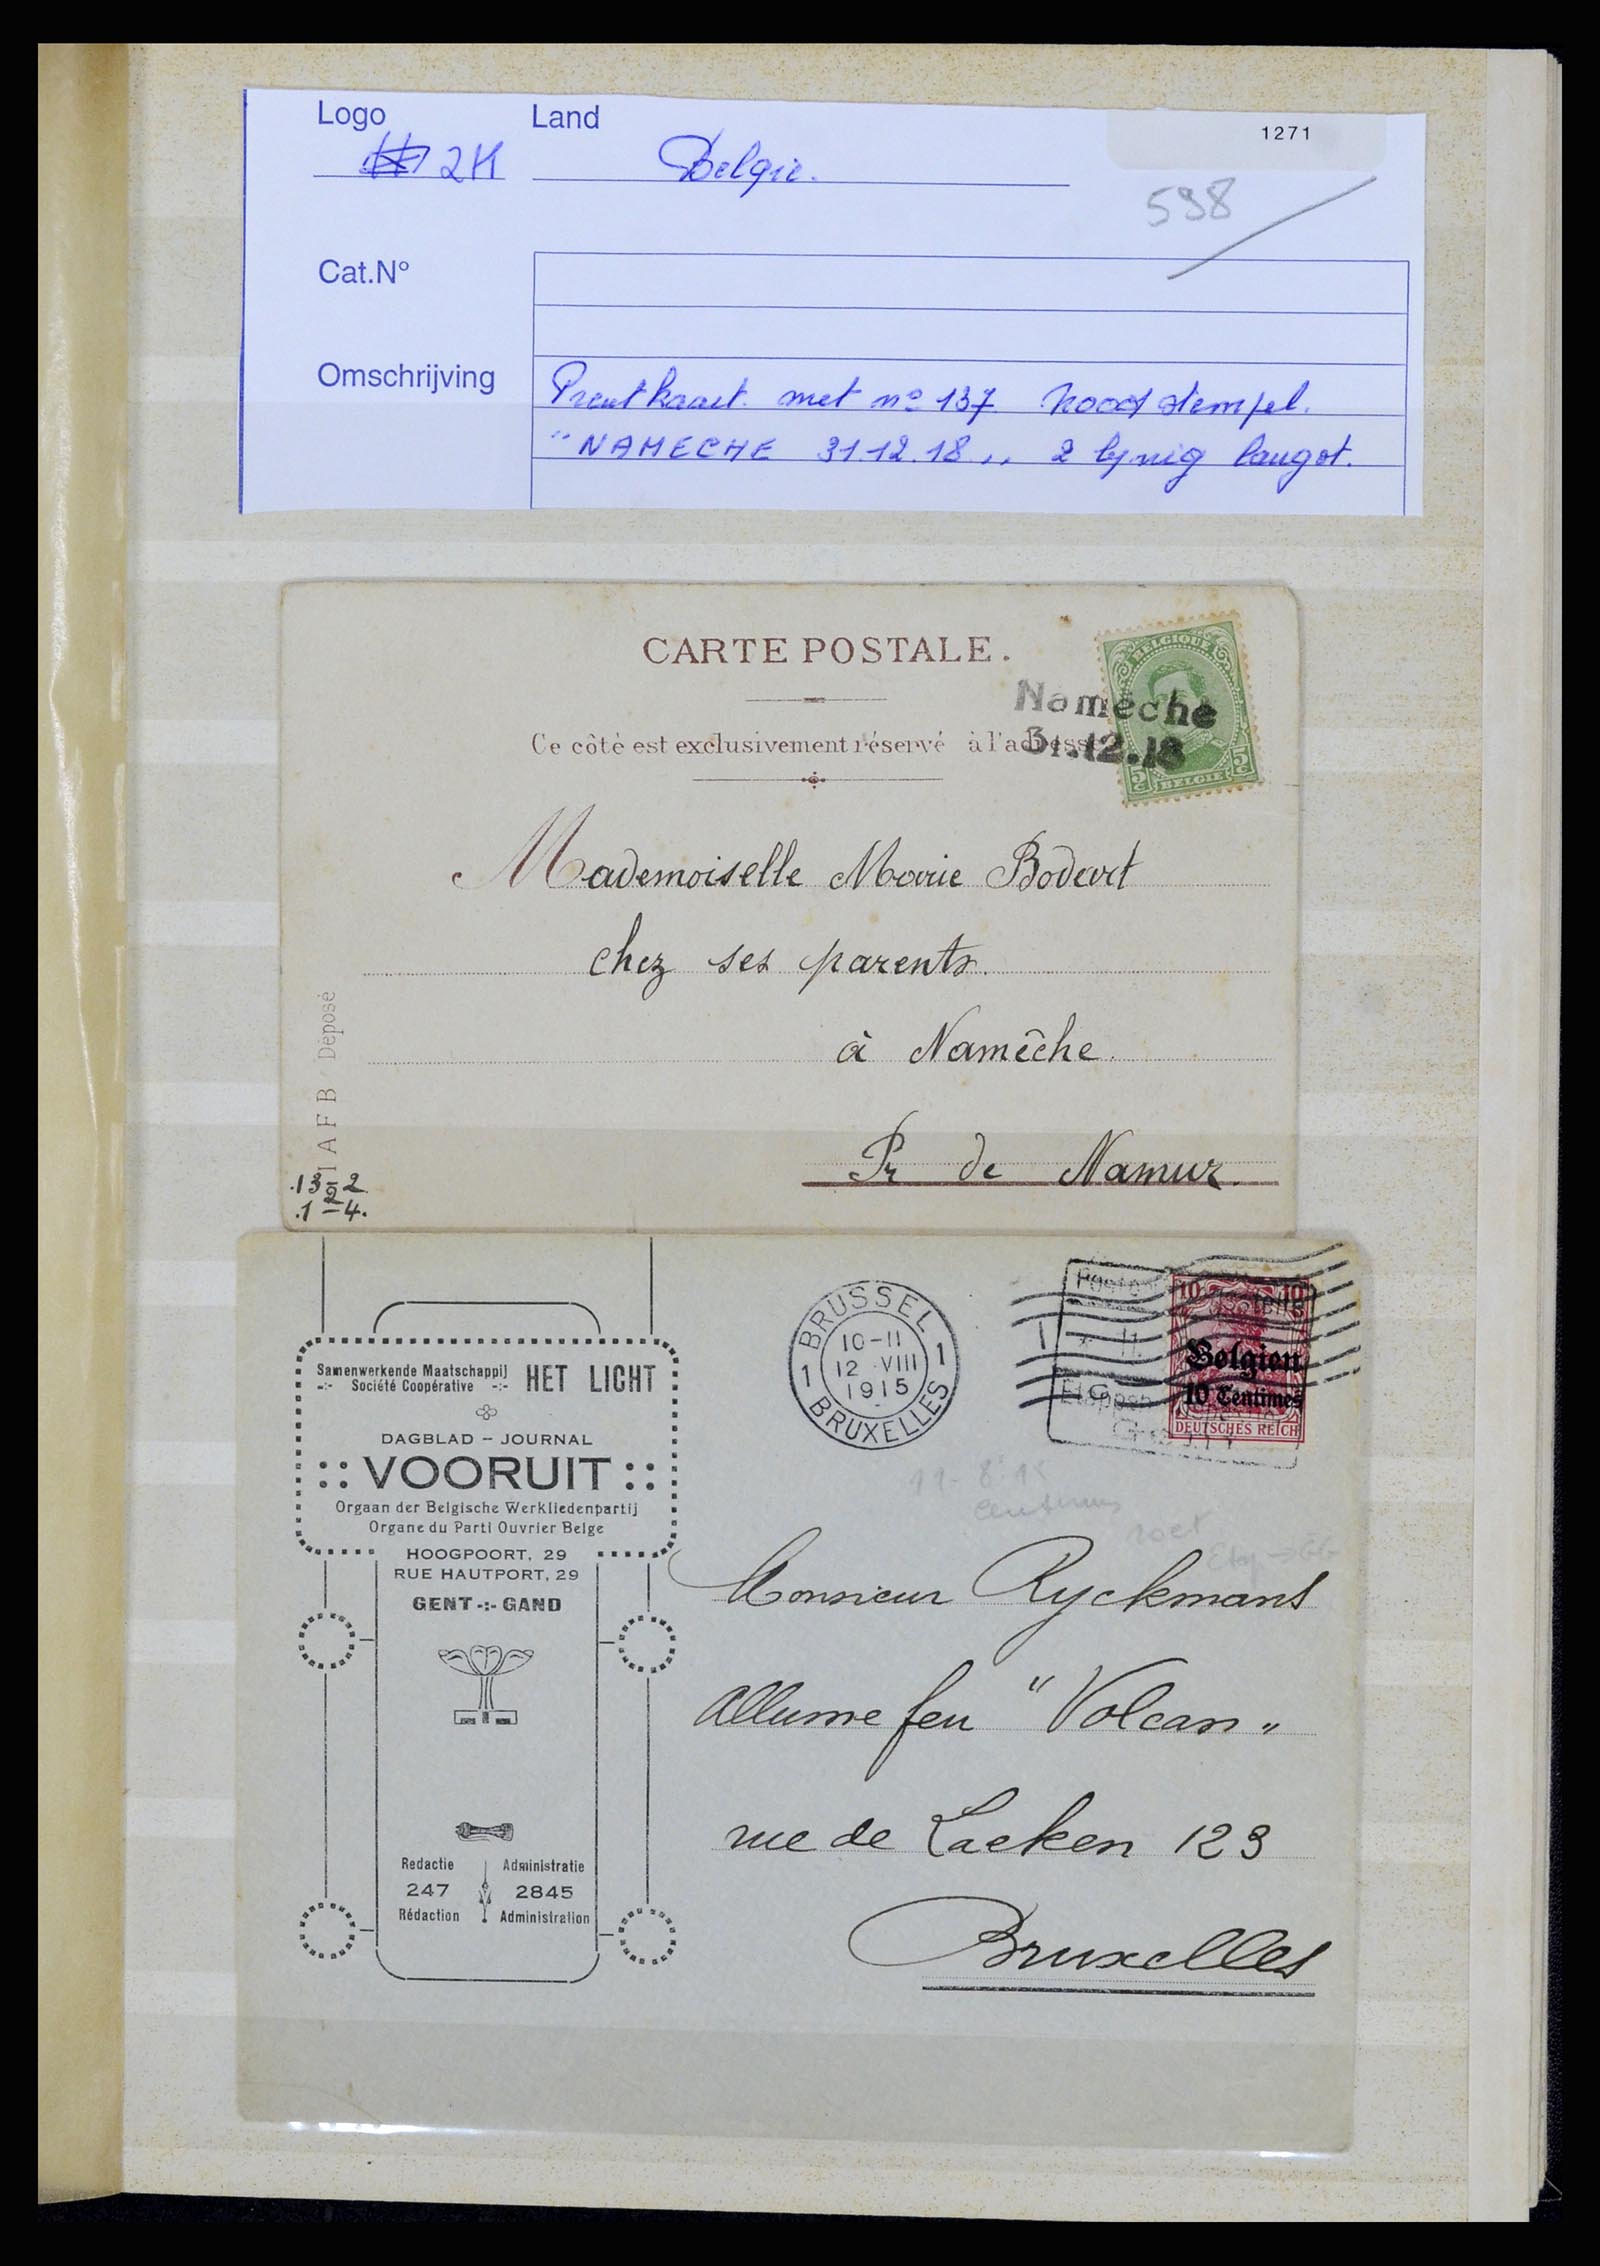 Logo Land 1271
2H Belgie.
598
Cat.N°
Omschrijving Prentkaart. met no 137 Noodstempel.
"NAMECHE 31.12.18 ,, 2 lynig langst.
CARTE POSTALE.
BELGIQUE
Nameche
Ce côté est exclusivement réservé à l'adresse
31.12.18
5c BELGIE 5c
Mademoiselle Marie Bodart
chez ses parents.
à Namêche.
Pr de Namur.
I A F B Déposé
.13-2
2
.1-4.
BRUSSEL
10-11
1 12 VIII 1
1915
BRUXELLES
Etappen
10 10
Belgien
10 Centimes
DEUTSCHES REICH
Samenwerkende Maatschappij HET LICHT
-:- Société Coopérative -:-
DAGBLAD – JOURNAL
:: VOORUIT ::
Orgaan der Belgische Werkliedenpartij
Organe du Parti Ouvrier Belge
HOOGPOORT, 29
RUE HAUTPORT, 29
GENT -:- GAND
Redactie Administratie
247 2845
Rédaction Administration
11-8-15
Monsieur Ryckmans
Allume feu "Volcan"
rue de Laeken 123
Bruxelles